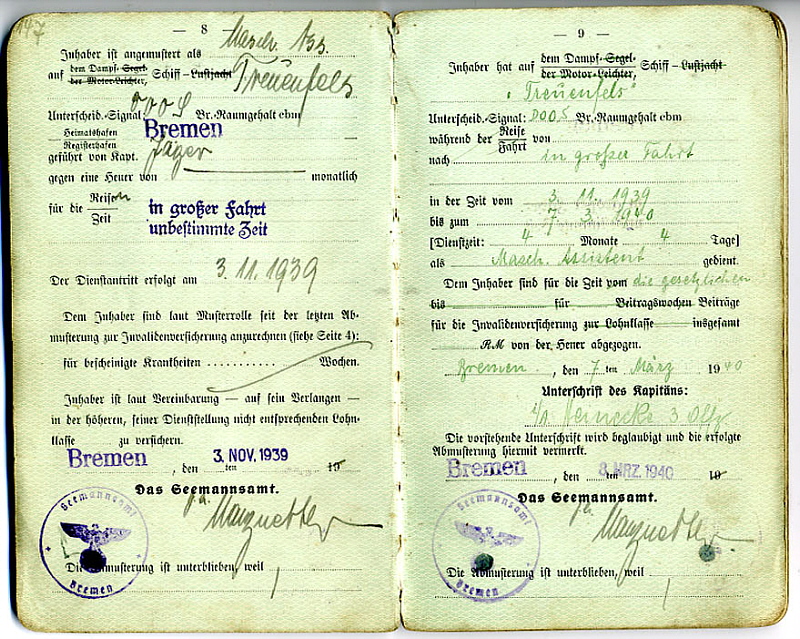 147
— 8 —
Inhaber ist angemustert als Masch. Ass.
auf dem Dampf-Segel- Schiff - Lustjacht Treuenfels
der Motor-Leichter,
Unterscheid.-Signal: DOOS Br.-Raumgehalt cbm
Heimatshafen
Registerhafen Bremen
geführt von Kapt. Jäger
gegen eine Heuer von monatlich
für die Reisen
Zeit
in großer Fahrt
unbestimmte Zeit
Der Dienstantritt erfolgt am 3.11.1939
Dem Inhaber sind laut Musterrolle seit der letzten Ab-
musterung zur Invalidenversicherung anzurechnen (siehe Seite 4):
für bescheinigte Krankheiten .......... Wochen.
Inhaber ist laut Vereinbarung — auf sein Verlangen —
in der höheren, seiner Dienststellung nicht entsprechenden Lohn-
klasse zu versichern.
Bremen, den 3. NOV. 1939 ten 19
Das Seemannsamt.
Seemannsamt
Bremen
Die Abmusterung ist unterblieben, weil
— 9 —
Inhaber hat auf dem Dampf-Segel- Schiff - Lustjacht
der Motor-Leichter,
"Treuenfels"
Unterscheid.-Signal: DOOS Br.-Raumgehalt cbm
während der Reise von
Fahrt
nach in großer Fahrt
in der Zeit vom 3 11. 1939
bis zum 7 3. 1940
[Dienstzeit: 4 Monate 4 Tage]
als Masch. Assistent gedient.
Dem Inhaber sind für die Zeit vom die gesetzlichen
bis für Beitragswochen Beiträge
für die Invalidenversicherung zur Lohnklasse insgesamt
RM von der Heuer abgezogen.
Bremen, den 7 ten März 1940
Unterschrift des Kapitäns:
Die vorstehende Unterschrift wird beglaubigt und die erfolgte
Abmusterung hiermit vermerkt.
Bremen, den 8. MRZ. 1940 ten 19
Das Seemannsamt.
Seemannsamt
Bremen
Die Abmusterung ist unterblieben, weil